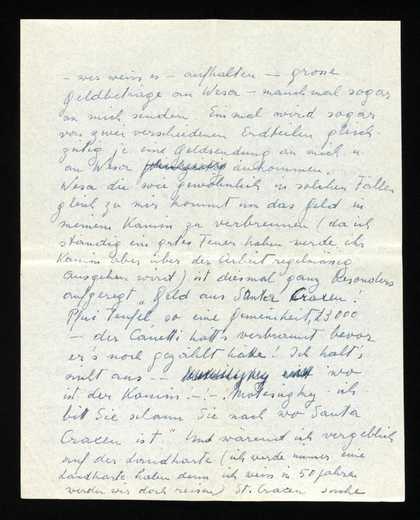 – wer weiss es – aufhalten – grosse
Geldbeträge an Wesa – manchmal sogar
an mich senden. Einmal wird sogar
von zwei verschiedenen Erdteilen gleich-
zeitig je eine Geldsendung an mich u.
an Wesa ankommen.
Wesa die wie gewöhnlich in solchen Fällen
gleich zu mir kommt um das Geld in
meinem Kamin zu verbrennen (da ich
ständig ein gutes Feuer haben werde, ihr
Kamin aber über der Arbeit regelmässig
ausgehen wird) ist diesmal ganz besonders
aufgeregt „Geld aus Santa Cracen!
Pfui Teufel so eine Gemeinheit, £3000
– der Canetti hat's verbrannt bevor
er's noch gezählt hatte! Ich halt's
nicht aus – wo
ist der Kamin –! – Motesizky ich
bitt Sie schaun Sie nach wo Santa
Cracen ist." Und während ich vergeblich
auf der Landkarte (ich werde immer eine
Landkarte haben denn ich weiss in 50 Jahren
werden wir doch reisen) St. Cracen suche